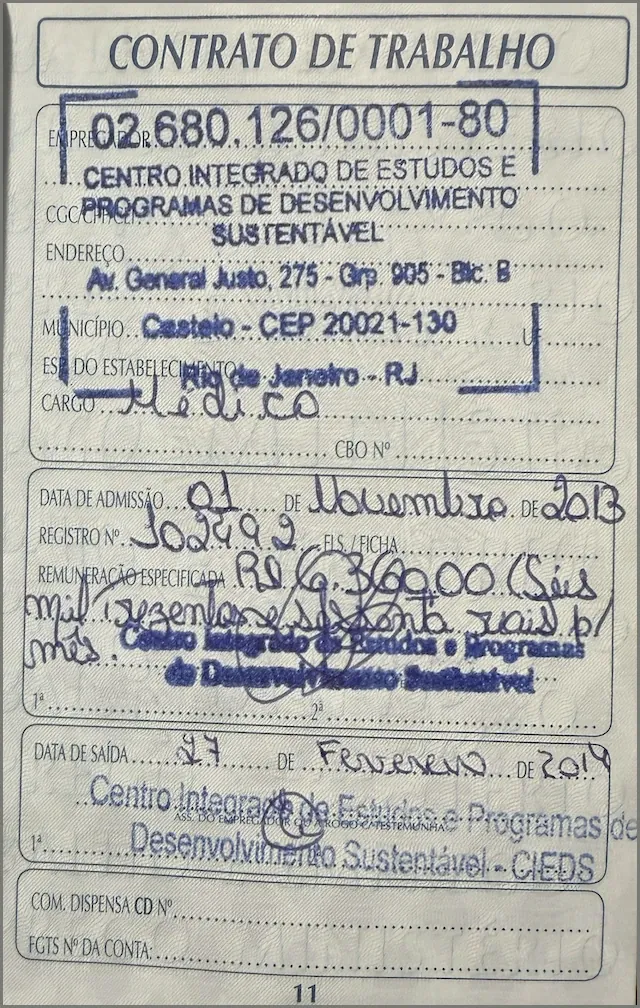 CONTRATO DE TRABALHO
02.680.126/0001-80
EMPREGADOR
CENTRO INTEGRADO DE ESTUDOS E
PROGRAMAS DE DESENVOLVIMENTO
CGC/CPF/CEI
SUSTENTÁVEL
ENDEREÇO
Av. General Justo, 275 - Grp. 905 - Blc. B
MUNICÍPIO Castelo - CEP 20021-130 UF
ESP. DO ESTABELECIMENTO Rio de Janeiro - RJ
CARGO Médico
CBO Nº
DATA DE ADMISSÃO 01 DE Novembro DE 2013
REGISTRO Nº 102492 FLS./FICHA
REMUNERAÇÃO ESPECIFICADA R$ 6.360,00 (Seis
mil trezentos e sessenta reais p/
mês.
Centro Integrado de Estudos e Programas
de Desenvolvimento Sustentável
1ª 2ª
DATA DE SAÍDA 27 DE Fevereiro DE 2014
Centro Integrado de Estudos e Programas de
ASS. DO EMPREGADOR OU A ROGO C/TESTEMUNHA
1ª Desenvolvimento Sustentável - CIEDS
COM. DISPENSA CD Nº
FGTS Nº DA CONTA:
11